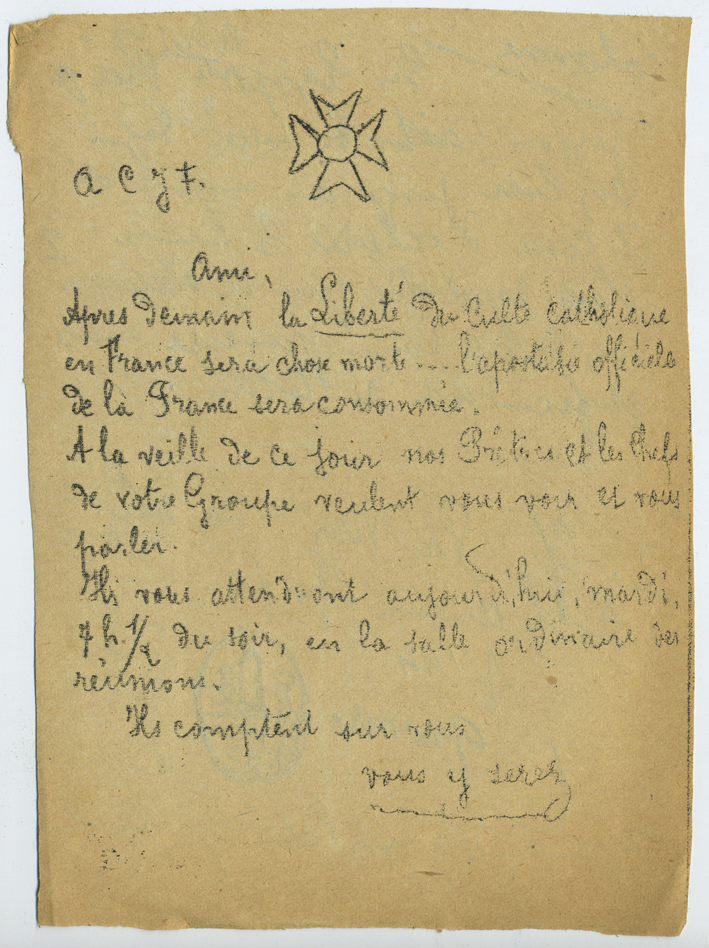 A C J F.
Ami,
Apres demain la Liberté du Culte catholique
en France sera chose morte .... l'apostasie officiele
de la France sera consommée.
A la veille de ce jour nos Prêtres et les Chefs
de votre Groupe veulent vous voir et vous
parler.
Ils vous attendront aujourd'hui, mardi,
h. 1/2 du soir, en la salle ordinaire des
réunions.
Ils comptent sur vous
vous y serez